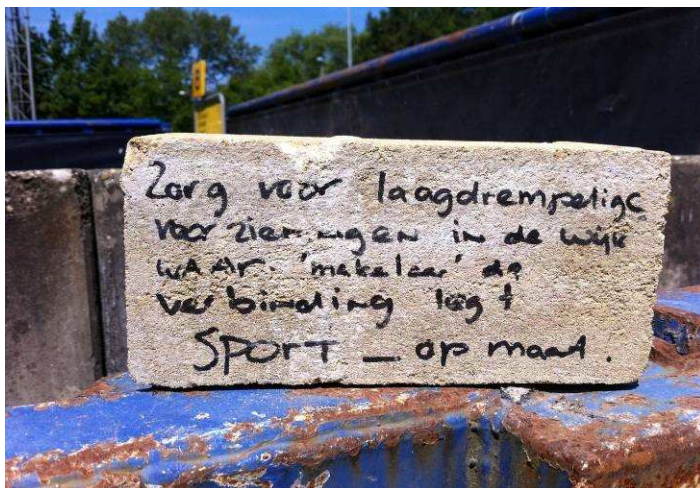 Zorg voor laagdrempelige
voorzieningen in de wijk
WAAR 'makelaar' de
verbinding legt
SPORT _ op maat.